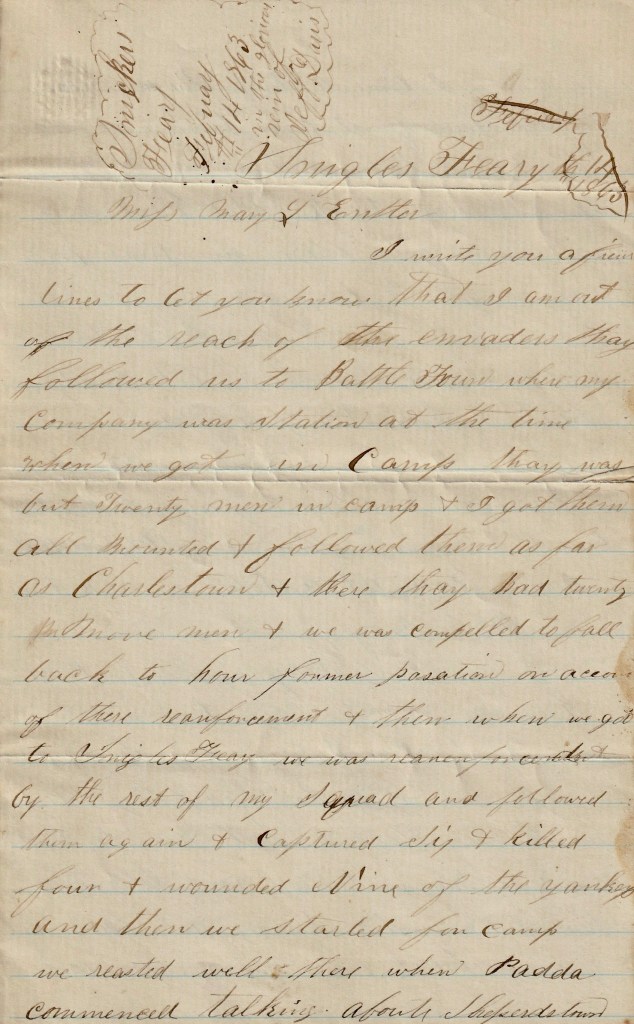 Snickers
Feary
Febuary
14 1863
in the glorious
rein of
Jeff
Davis
Snigles Feary 14
1863
Miss May L
I write you a few
lines to let you know that I am out
of the reach of the envaders thay
followed us to Battle Town where my
company was station at the time
when we got in Camp thay was
but Twenty men in camp & I got them
all mounted & followed them as far
as Charlestown & there thay had twenty
more men & we was compelled to fall
back to hour former posation on accou
of there reanforcement & then when we got
to Snigles Feary we was
by the rest of my Squad and followed
them again & captured Six & killed
four & wounded Nine of the yankeys
and then we started for camp
we reasted well there when Padda
commenced talking about Sheperdstown